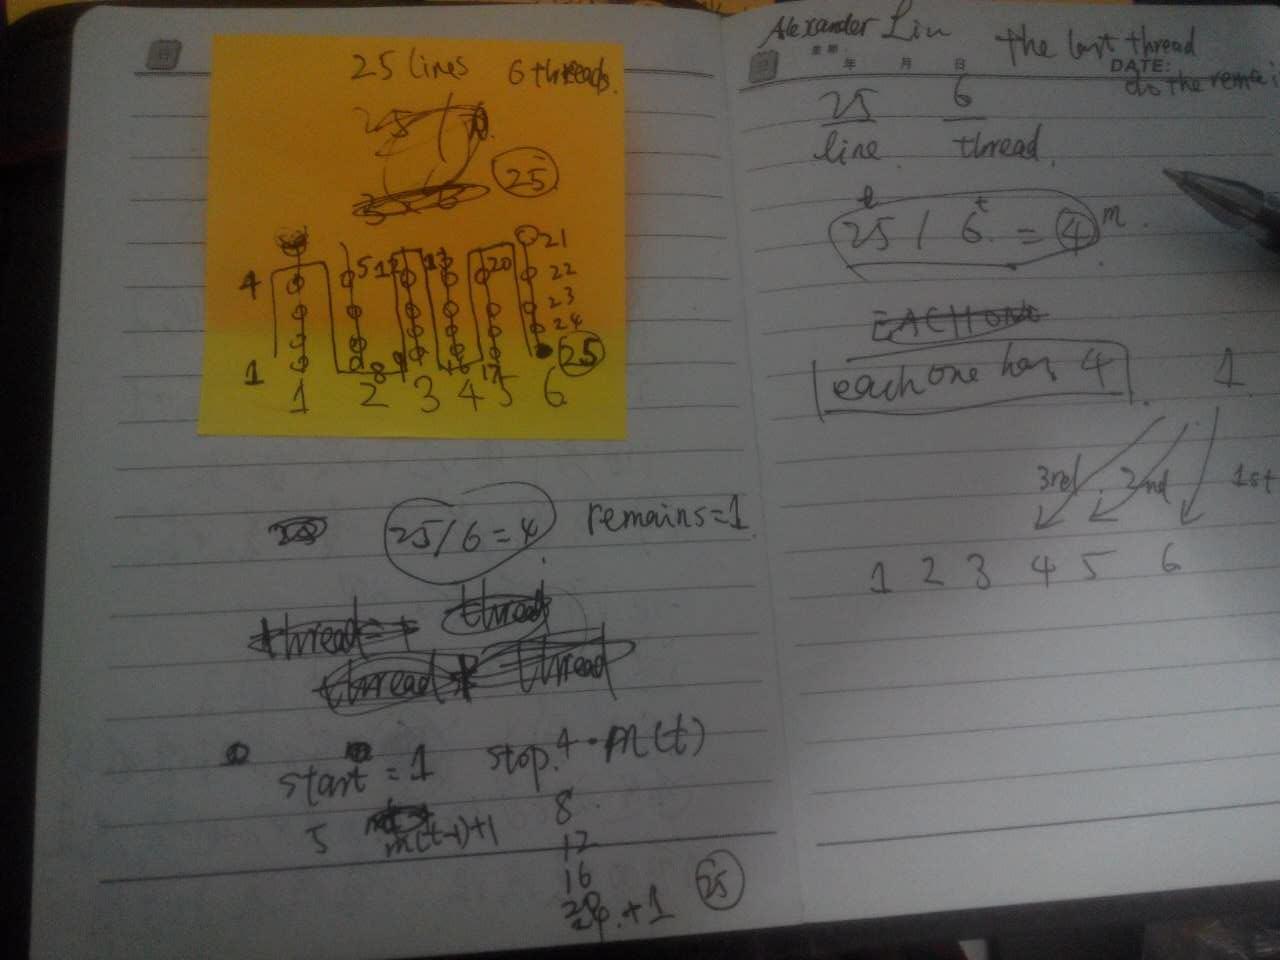 25 lines 6 threads.
25 /
25
4 5 12 13 20 21
22
23
24
1 8 9 16 17 25
1 2 3 4 5 6
25/6=4 remains=1
thread
thread
start = 1 stop. 4 · m(t)
5 m(t-1)+1 8
12
16
+1 25
Alexander Lin the last thread
日
年 月 日 DATE:
do the remai
25 6
line. thread.
l t
25 / 6 = 4 m
EACH ONE
each one has 4 1
3rd 2nd 1st
1 2 3 4 5 6